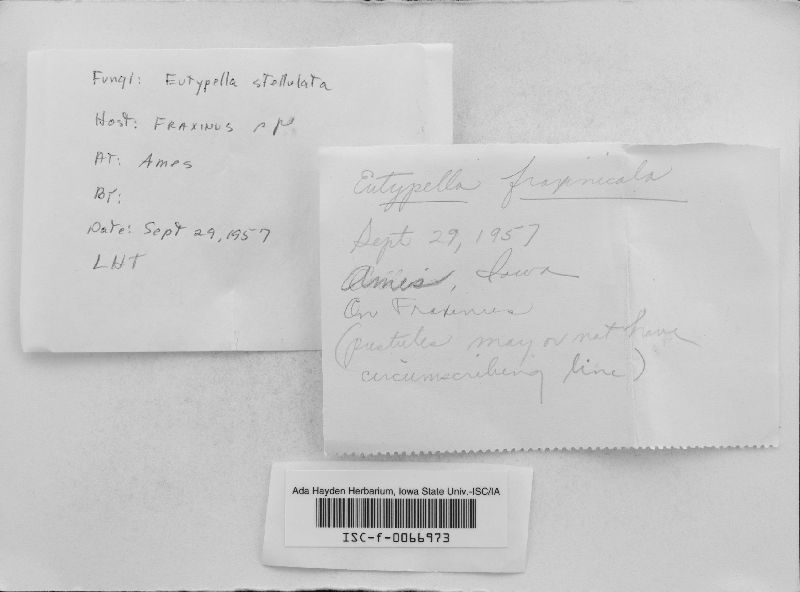 Fungi: Eutypella stellulata
Host: Fraxinus sp
At: Ames
By:
Date: Sept 29, 1957
LHT
Eutypella fraxinicola
Sept 29, 1957
Ames, Iowa
On Fraxinus
(pustules may or not have
circumscribing line)
Ada Hayden Herbarium, Iowa State Univ.-ISC/IA
ISC-f-0066973